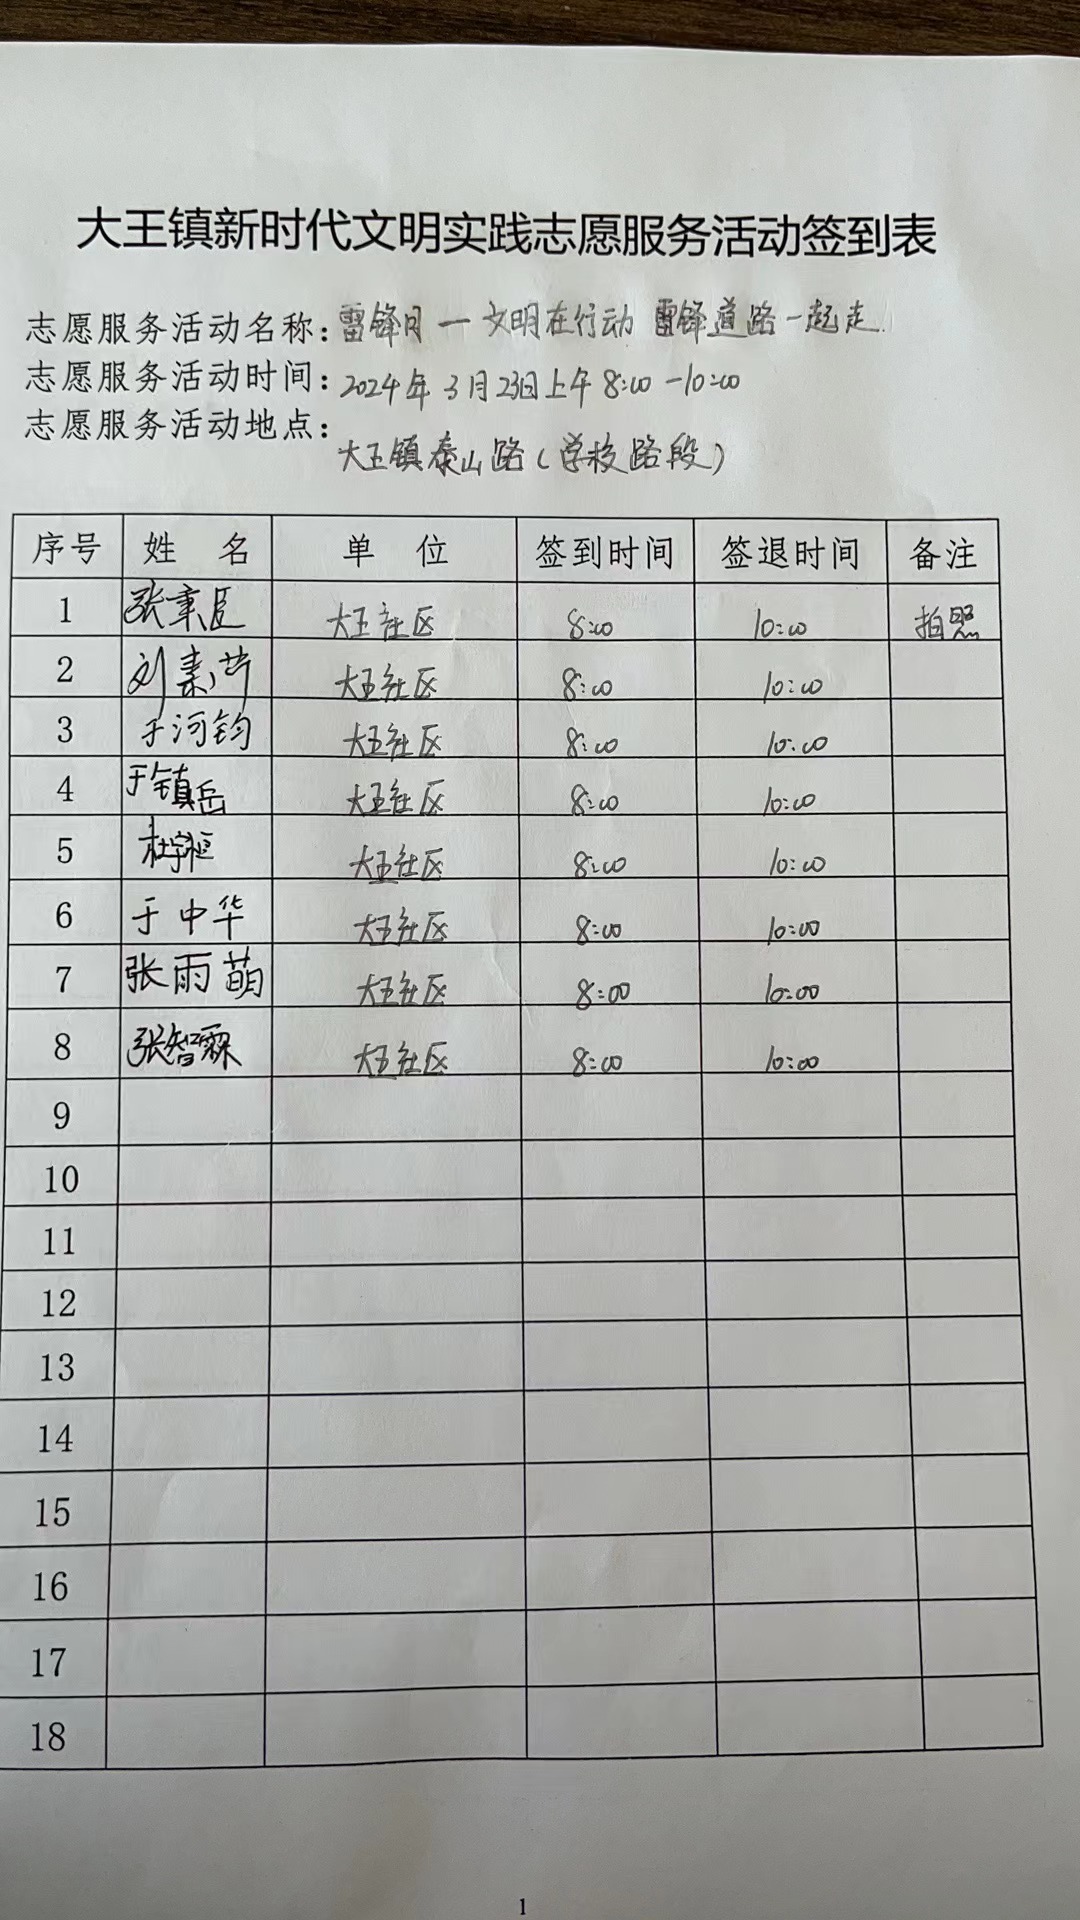 大王镇新时代文明实践志愿服务活动签到表
志愿服务活动名称：雷锋月一文明在行动 雷锋道路一起走
志愿服务活动时间：2024年3月23日上午8:00-10:00
志愿服务活动地点：大王镇泰山路（学校路段）
序号 姓 名 单 位 签到时间 签退时间 备注
1 张秉臣 大王社区 8:00 10:00 拍照
2 刘素 大王社区 8:00 10:00
3 于河钧 大王社区 8:00 10:00
4 于镇岳 大王社区 8:00 10:00
5 杜 大王社区 8:00 10:00
6 于中华 大王社区 8:00 10:00
7 张雨萌 大王社区 8:00 10:00
8 张智霖 大王社区 8:00 10:00
9
10
11
12
13
14
15
16
17
18
1